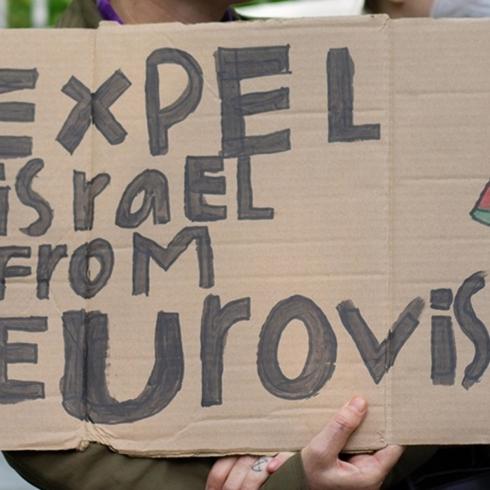 EXPEL
israEL
FroM
EUroviS